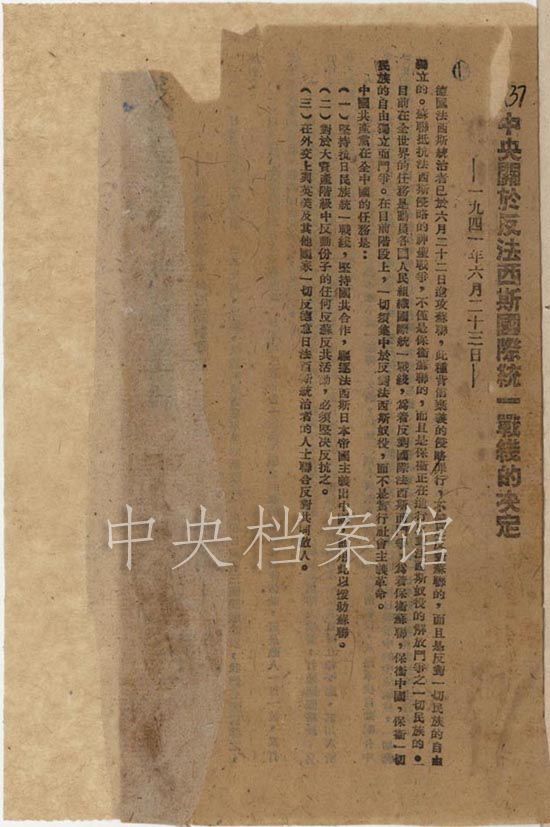 37
中央關於反法西斯國際統一戰綫的决定
——一九四一年六月二十三日——
德國法西斯統治者已於六月二十二日進攻蘇聯，此種背信棄義的侵略罪行，不僅是反對蘇聯的，而且是反對一切民族的自由
獨立的。蘇聯抵抗法西斯侵略的神聖戰爭，不僅是保衛蘇聯的，而且是保衛正在進行反對法西斯奴役的解放鬥爭之一切民族的。
目前在全世界的任務是動員各國人民組織國際統一戰綫，爲着反對國際法西斯，爲着保衛蘇聯，保衛中國，保衛一切
民族的自由獨立而鬥爭。在目前階段上，一切須集中於反對法西斯奴役，而不是實行社會主義革命。
中國共產黨在全中國的任務是：
（一）堅持抗日民族統一戰綫，堅持國共合作，驅逐法西斯日本帝國主義出中國，即用此以援助蘇聯。
（二）對於大資產階級中反動份子的任何反蘇反共活動，必須堅决反抗之。
（三）在外交上與英美及其他國家一切反德意日法西斯統治者的人士聯合反對共同敵人。
中央档案馆